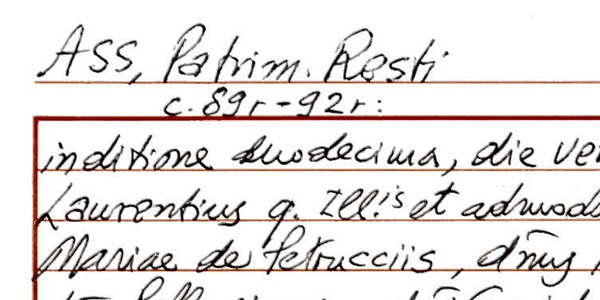 Ass, Patrim. Resti
c. 89r-92r:
inditione duodecima, die
Laurentius q. Ill!is et
Mariae de Petrucciis,